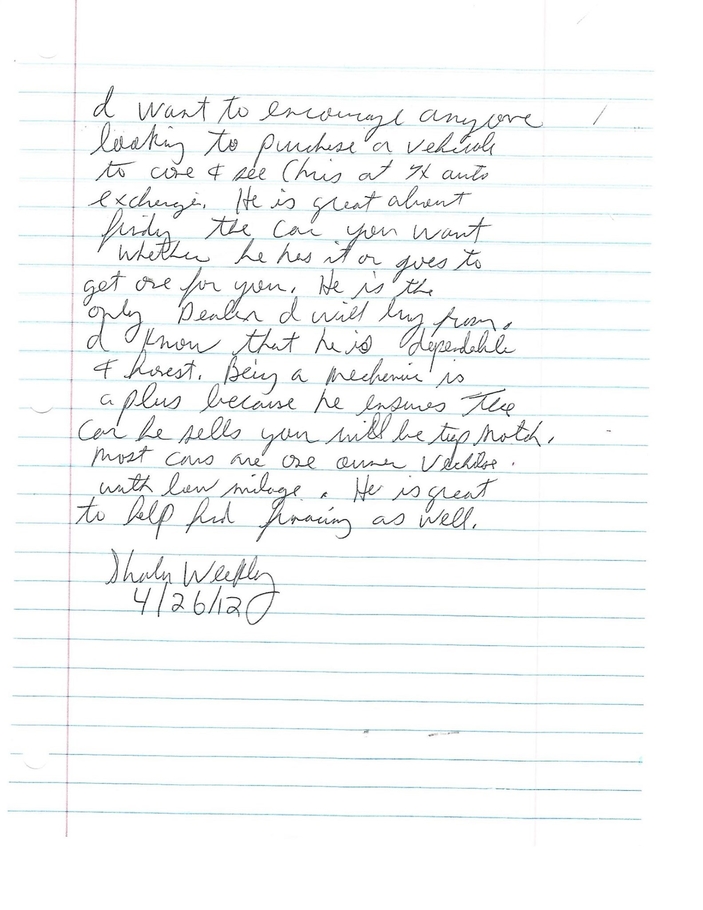 I want to encourage anyone
looking to purchase a vehicle
to come & see Chris at TX auto
exchange. He is great about
finding the car you want
whether he has it or goes to
get one for you. He is the
only Dealer I will buy from.
I know that he is dependable
& honest. Being a mechanic is
a plus because he ensures the
car he sells you will be top notch.
most cars are one owner
with low milage. He is great
to help find financing as well.
4/26/12